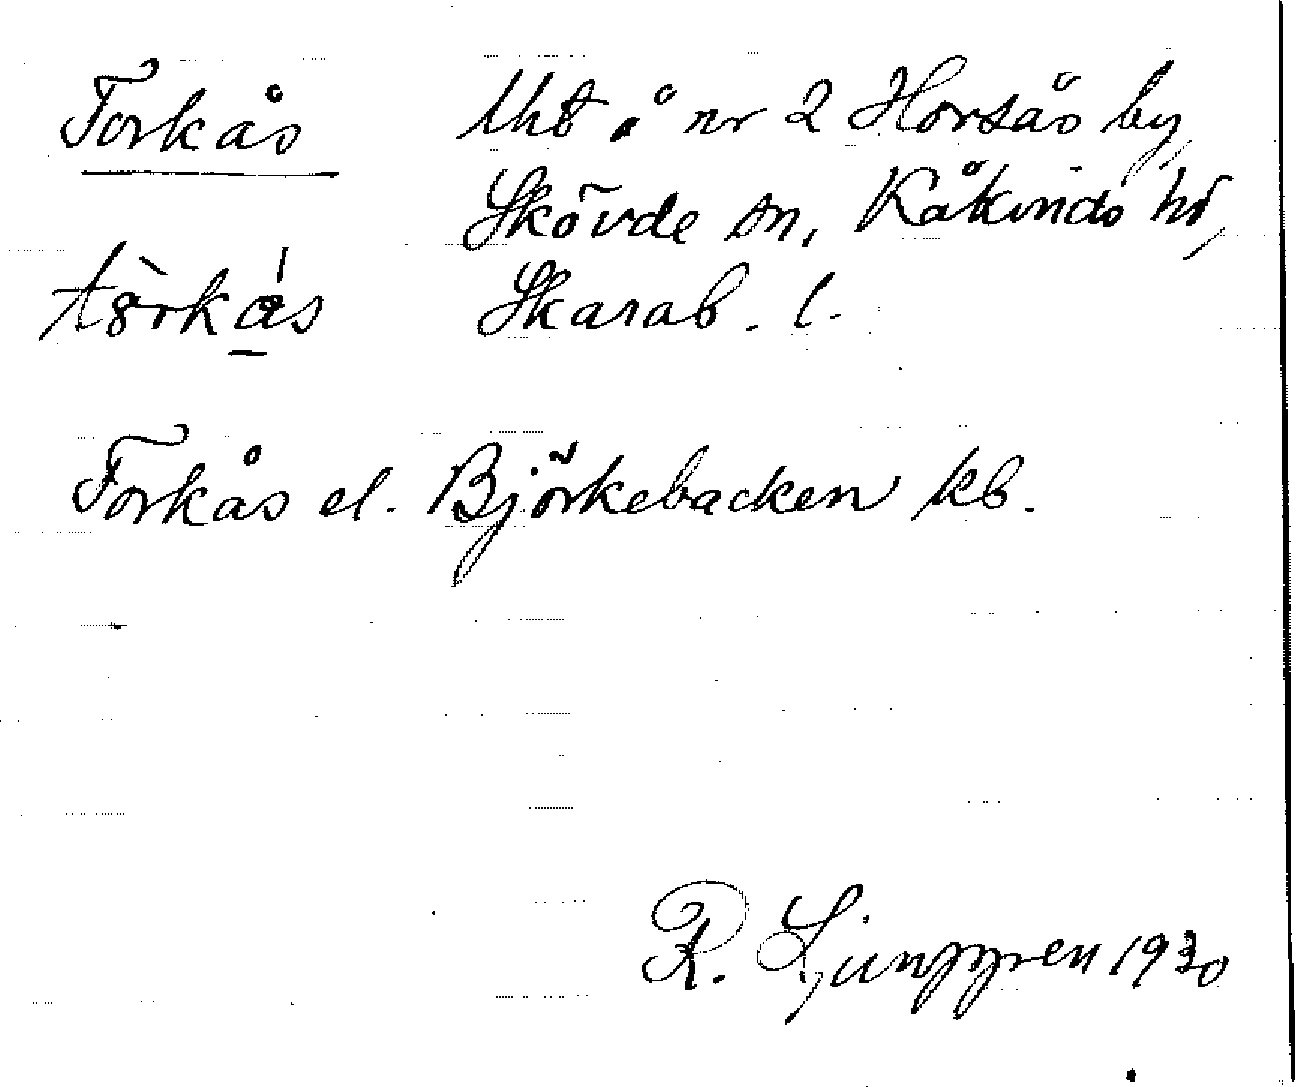 Torkås
Uht å nr 2 Horsås by,
Skövde sn, Kåkinds hd,
Skarab. l.
tòrkás
Torkås el. Björkebacken kb.
R. Ljunggren 1930